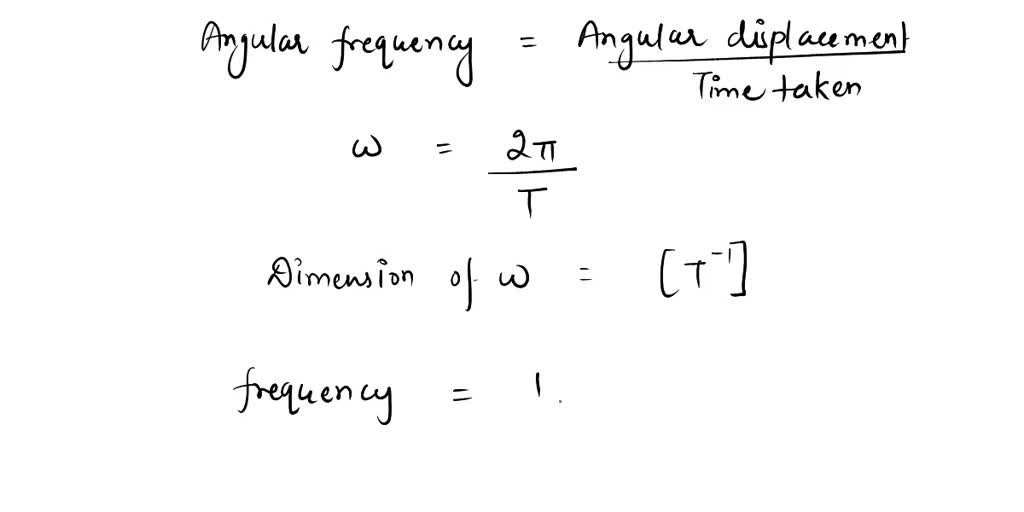 Angular frequency = Angular displacement / Time taken
ω = 2π / T
Dimension of ω = [T⁻¹]
frequency = 1.